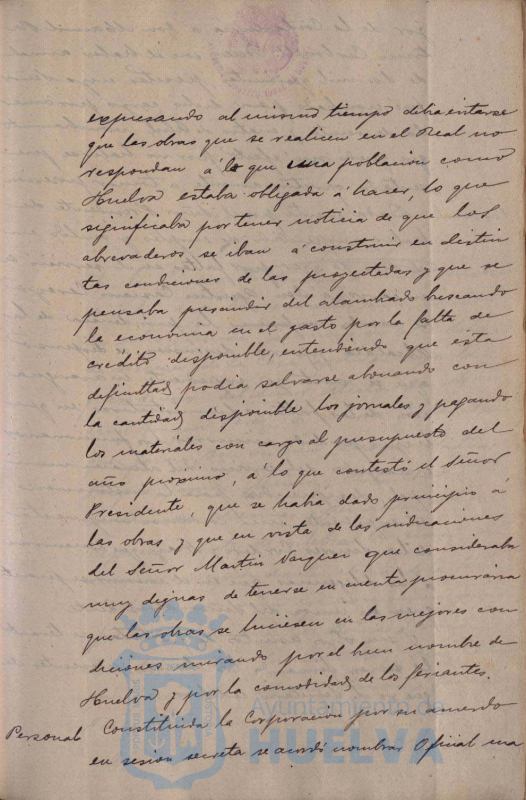 expresando al mismo tiempo debia evitarse
que las obras que se realicen en el Real no
respondan á lo que una poblacion como
Huelva estaba obligada á hacer, lo que
significaba por tener noticia de que los
abrevaderos se iban á construir en distin
tas condiciones de las proyectadas y que se
pensaba prescindir del alambrado buscando
la economia en el gasto por la falta de
crédito disponible, entendiendo que esta
dificultad podia salvarse abonando con
la cantidad disponible los jornales y pagando
los materiales con cargo al presupuesto del
año próximo, á lo que contestó el Señor
Presidente, que se habia dado principio á
las obras y que en vista de las indicaciones
del Señor Martin Vazquez que consideraba
muy dignas de tenerse en cuenta procuraria
que las obras se hiciesen en las mejores con
diciones mirando por el buen nombre de
Huelva y por la comodidad de los feriantes.
Personal
Constituida la Corporacion por su acuerdo
en sesion secreta se acordó nombrar Oficial
Ayuntamiento de
HUELVA